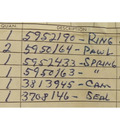 QUAN.
1 5952190 - RING
2 5950164 - PAWL
1 5952433 - SPRING
1 5950163 - "
1 3813945 - CAM
1 3708146 - SEAL